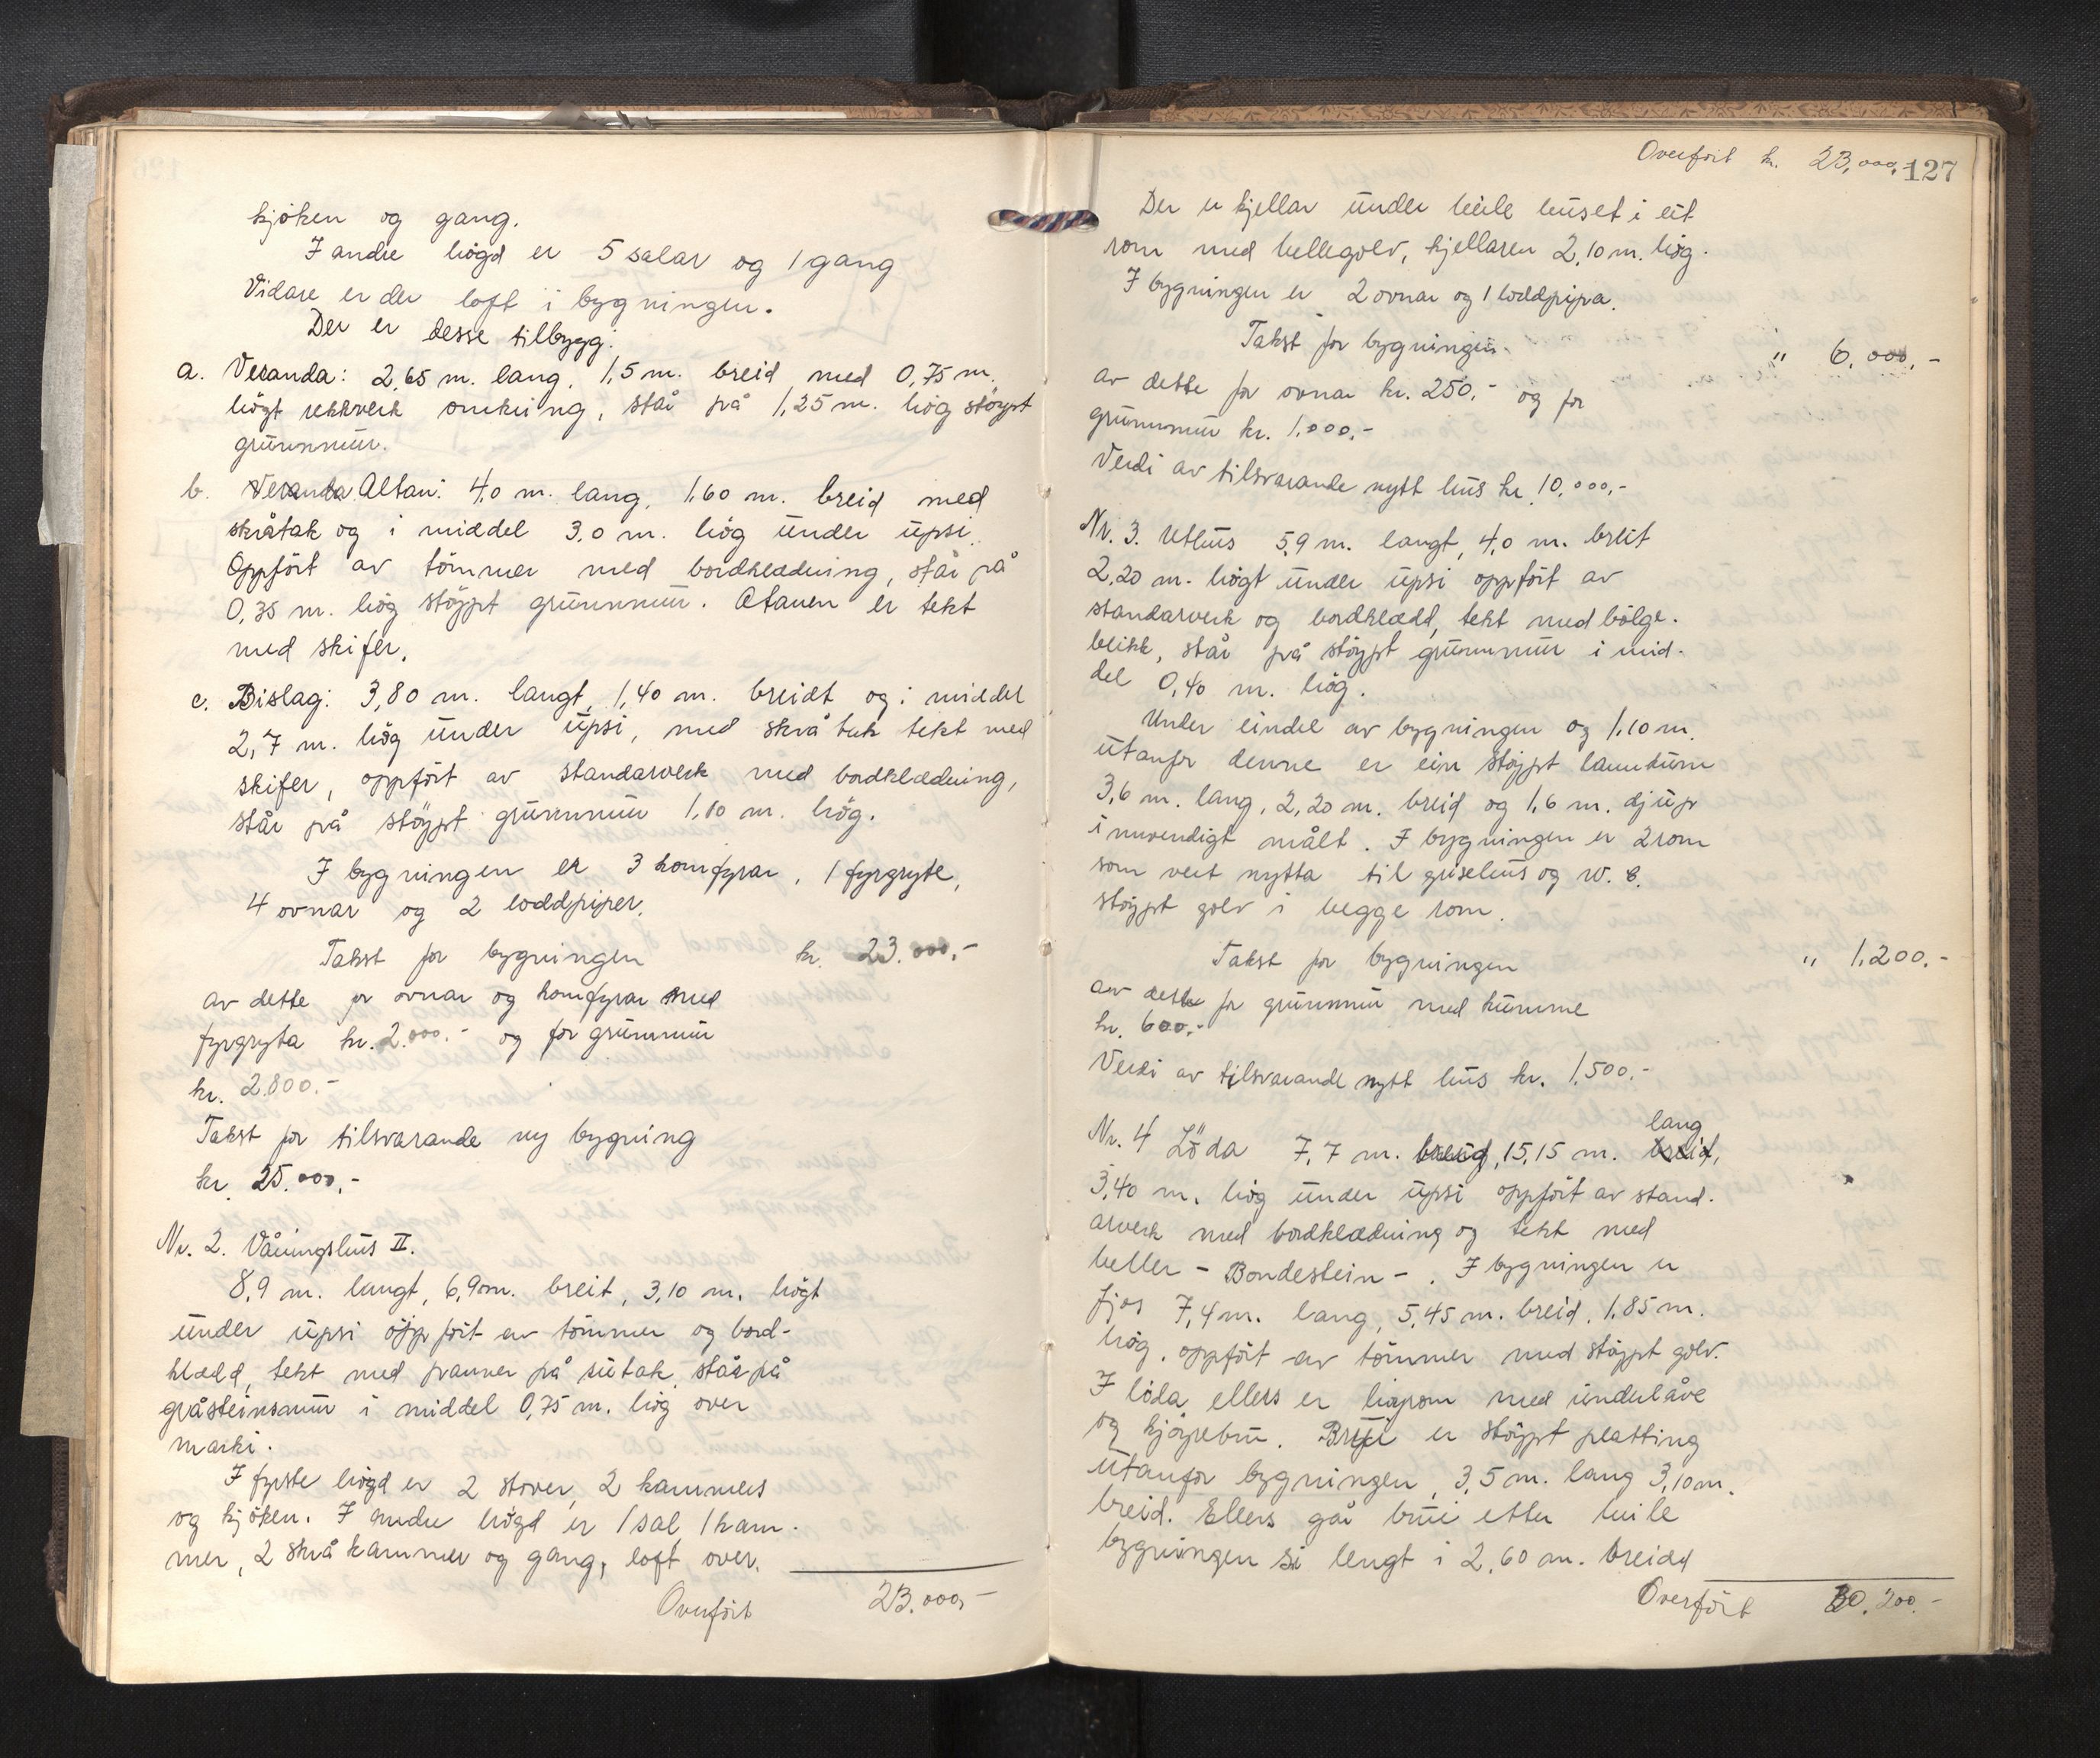 kjøken og gang.
I andre högd er 5 salar og 1 gang
Vidare er der loft i bygningen.
Der er desse tilbygg:
a. Veranda: 2,65 m. lang, 1,5 m. breid med 0,75 m.
högt rekkverk omkring, står på 1,25 m. høg støypt
grunnmur.
b. Veranda Altan: 4,0 m. lang, 1,60 m. breid med
skråtak og i middel 3,0 m. høg under upsi.
Oppfört av tömmer med bordklædning, står på
0,35 m. høg støypt grunnmur. Atanen er tekt
med skifer.
c. Bislag: 3,80 m. langt, 1,40 m. breidt og i middel
2,7 m. høg under upsi, med skråtak tekt med
skifer, oppfört av standarverk med bordklædning,
står på støypt grunnmur 1,10 m. høg.
I bygningen er 3 komfyrar, 1 fyrgryte,
4 ovnar og 2 loddpiper.
Takst for bygningen kr. 23.000,-
av dette for ovnar og komfyrar med
fyrgryta kr. 2.000.- og for grunnmur
kr. 2.800.-
Takst for tilsvarande ny bygning
kr. 25.000,-
Nr. 2. Våningshus II.
8,9 m. langt, 6,9 m. breit, 3,10 m. högt
under upsi oppfört av tömmer og bord-
klædd, tekt med panner på sutak, står på
gråsteinsmur i middel 0,75 m. høg over
marki.
I fyrste högd er 2 stover, 2 kammers
og kjøken. I andre högd er 1 sal 1 kam-
mer, 2 skråkammer og gang, loft over.
Overfört 23.000,-
Overfört kr. 23.000,-
127
Der er kjellar under heile huset i eit
rom med hellegolv, kjellaren 2,10 m. høg.
I bygningen er 2 ovnar og 1 loddpipa.
Takst for bygningen. " 6.000,-
av dette for ovnar kr. 250.- og for
grunnmur kr. 1.000.-
Verdi av tilsvarande nytt hus kr. 10.000,-
Nr. 3. Uthus 5,9 m. langt, 4,0 m. breit
2,20 m. högt under upsi oppfört av
standarverk og bordklædd, tekt med bölge-
blikk, står på støypt grunnmur i mid-
del 0,40 m. høg.
Under eindel av bygningen og 1,10 m.
utanfor denne er ein støypt landkum
3,6 m. lang, 2,20 m. breid og 1,6 m. djup
innvendigt målt. I bygningen er 2 rom
som vert nytta til grisehus og W.C.
støypt golv i begge rom.
Takst for bygningen " 1.200.-
av dette for grunnmur med kumme
kr. 600.-
Verdi av tilsvarande nytt hus kr. 1.500.-
lang
Nr. 4 Löda 7,7 m. breid, 15,15 m. breid,
3,40 m. høg under upsi oppfört av stand-
arverk med bordklædning og tekt med
heller - Bondestein -. I bygningen er
fjos 7,4 m. lang, 5,45 m. breid, 1,85 m.
høg. oppfört av tömmer med støypt golv.
I löda ellers er høyrom med underlåve
og kjøyrebru. er støypt platting
utanfor bygningen 3,5 m. lang 3,10 m.
breid. Ellers går brui etter heile
bygningen si lengt i 2,60 m. breidd
Overfört 30.200.-